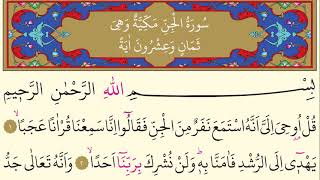 سُورَةُ الْجِنِّ مَكِّيَّةٌ وَهِىَ
ثَمَانٍ وَعِشْرُونَ اٰيَةً
بِسْمِ اللّٰهِ الرَّحْمٰنِ الرَّحٖيمِ
قُلْ اُوحِىَ اِلَىَّ اَنَّهُ اسْتَمَعَ نَفَرٌ مِنَ الْجِنِّ فَقَالُٓوا اِنَّا سَمِعْنَا قُرْاٰنًا عَجَبًاۙ ﴿١﴾
يَهْدٖٓى اِلَى الرُّشْدِ فَاٰمَنَّا بِهٖؕ وَلَنْ نُشْرِكَ بِرَبِّنَٓا اَحَدًاۙ ﴿٢﴾ وَاَنَّهُ تَعَالٰى جَدُّ